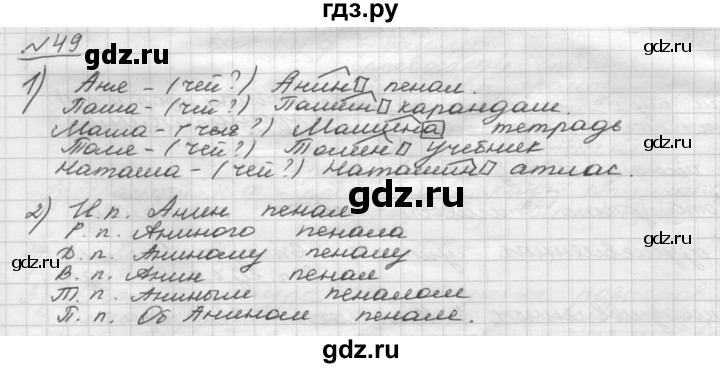 гдз.ру
№49
gdz.ru
gdz.ru
1) Аня - (чей?) Анин пенал.
Паша - (чей?) Пашин карандаш.
Маша - (чья?) Машина тетрадь
gdz.ru
gdz.ru
Толя - (чей?) Толин учебник
Наташа - (чей?) Наташин атлас.
gdz.ru
2) И.п. Анин пенал
Р.п. Аниного пенала
gdz.ru
Д.п. Аниному пеналу
gdz.ru
В.п. Анин пенал
Т.п. Аниным пеналом
П.п. Об Анином пенале.
gdz.ru
gdz.ru
gdz.ru